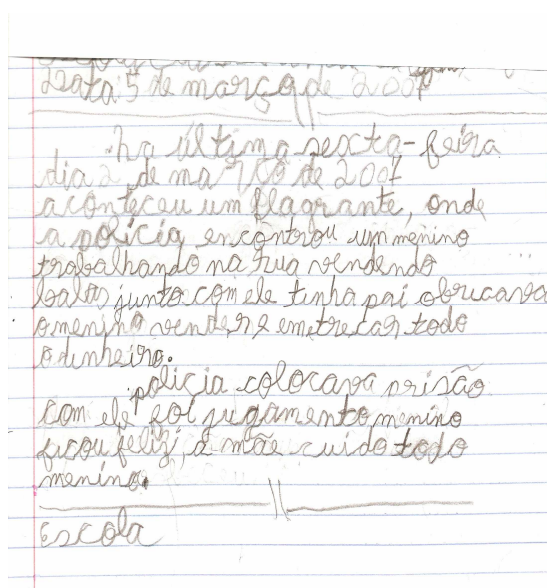 Data: 5 de março de 2007
na última sexta-feira
dia 2 de março de 2007
aconteceu um flagrante, onde
a polícia encontrou um menino
trabalhando na rua vendendo
balas junto com ele tinha pai obrucava
o menino vender e emtrecar todo
o dinheiro.
policia colocava prisão
com ele foi jugamento menino
ficou feliz, a mãe cuido todo
menino.
Escola